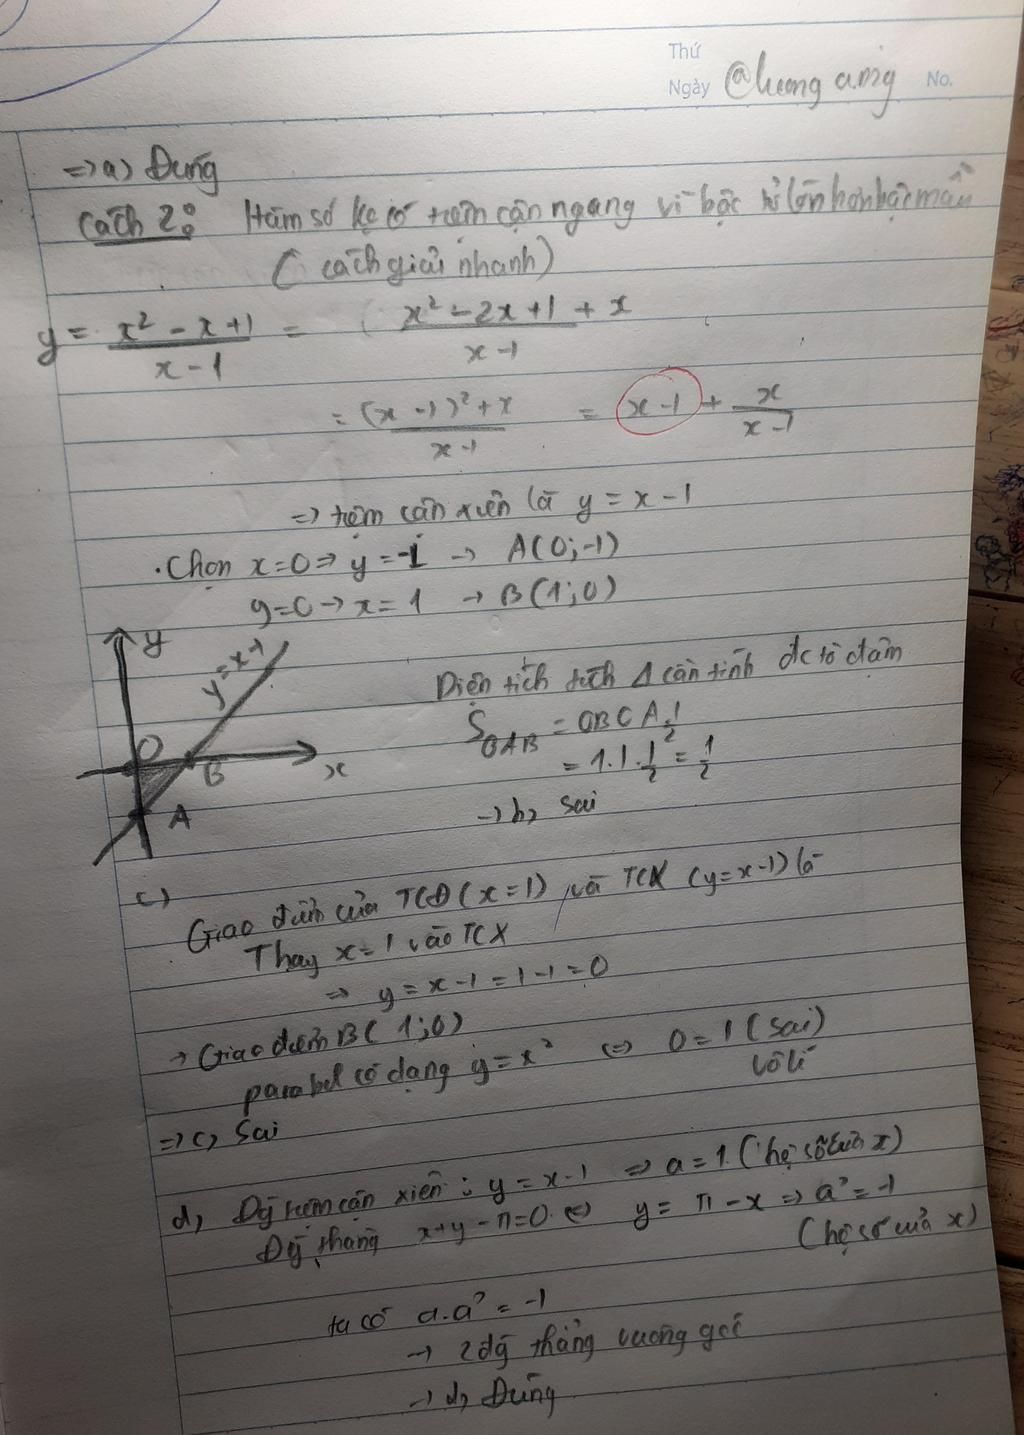 Thứ
Ngày @luong aing No.
=> a) Đúng
Cách 2: Hàm số ko có tiệm cận ngang vì bậc tử lớn hơn bậc mẫu
( cách giải nhanh)
y = (x² - x + 1)/(x - 1) = (x² - 2x + 1 + x)/(x - 1)
= ((x - 1)² + x)/(x - 1) = x - 1 + x/(x - 1)
=> tiệm cận xiên là y = x - 1
. Chọn x = 0 => y = -1 -> A(0; -1)
y = 0 -> x = 1 -> B(1; 0)
y
y = x - 1
O
B
x
A
Diện tích tích Δ cần tính đc tô đậm
S OAB = OB.OA.1/2
= 1.1.1/2 = 1/2
-> b, Sai
c)
Giao điểm của TCĐ (x = 1) và TCX (y = x - 1) là
Thay x = 1 vào TCX
=> y = x - 1 = 1 - 1 = 0
-> Giao điểm B(1; 0)
parabol có dạng y = x² <=> 0 = 1 (sai)
vô lí
=> c, Sai
d, Đg tiệm cận xiên : y = x - 1 => a = 1 (hệ số của x)
Đg thẳng x + y - π = 0 <=> y = π - x => a' = -1
(hệ số của x)
ta có a.a' = -1
-> 2 đg thẳng vuông góc
-> d, Đúng